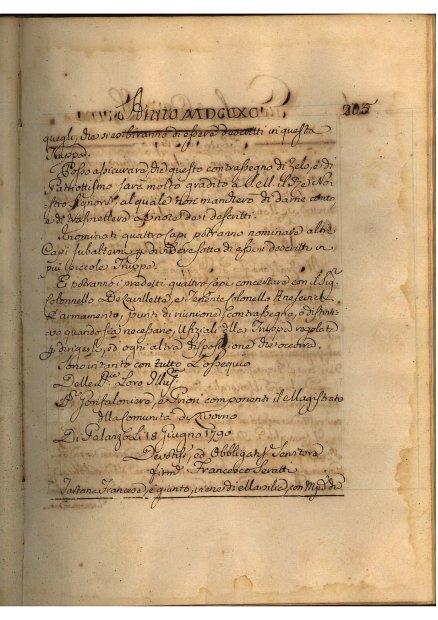 Anno MDCCXC 205
quegli, che si esibiranno di essere descritti in questa
Truppa.
Posso assicurarvi, che questo contrassegno di zelo, e di
Patriottismo sarà molto gradito a
stro Signore, al quale non mancherò di darne conto
e di trasmettere a suo tempo i descritti.
I nominati quattro Capi potranno nominare altri
Capi subalterni per dividere sotto di essi i descritti in
più piccole Truppe.
E potranno i predetti quattro Capi concertare con il Sig.
Colonnello De Cavilletta, e Tenente Colonello
l'armamento, punti di riunione, contrassegno, o distinti-
vo quando sia necessario, Ufiziali della Truppa regolata
per dirigerli, ed ogni altra disposizione che occorra.
Sono intanto con tutto l'ossequio
Delle Loro Illus.
Sig. Gonfaloniere, e Priori componenti il Magistrato
della Comunità di Livorno
Di Palazzo li 18 Giugno 1790
Devotiss. ed Obbligatis. Servitore
firm. Francesco Seratti
Tartana Francese, è giunta, viene di Marsilia, con